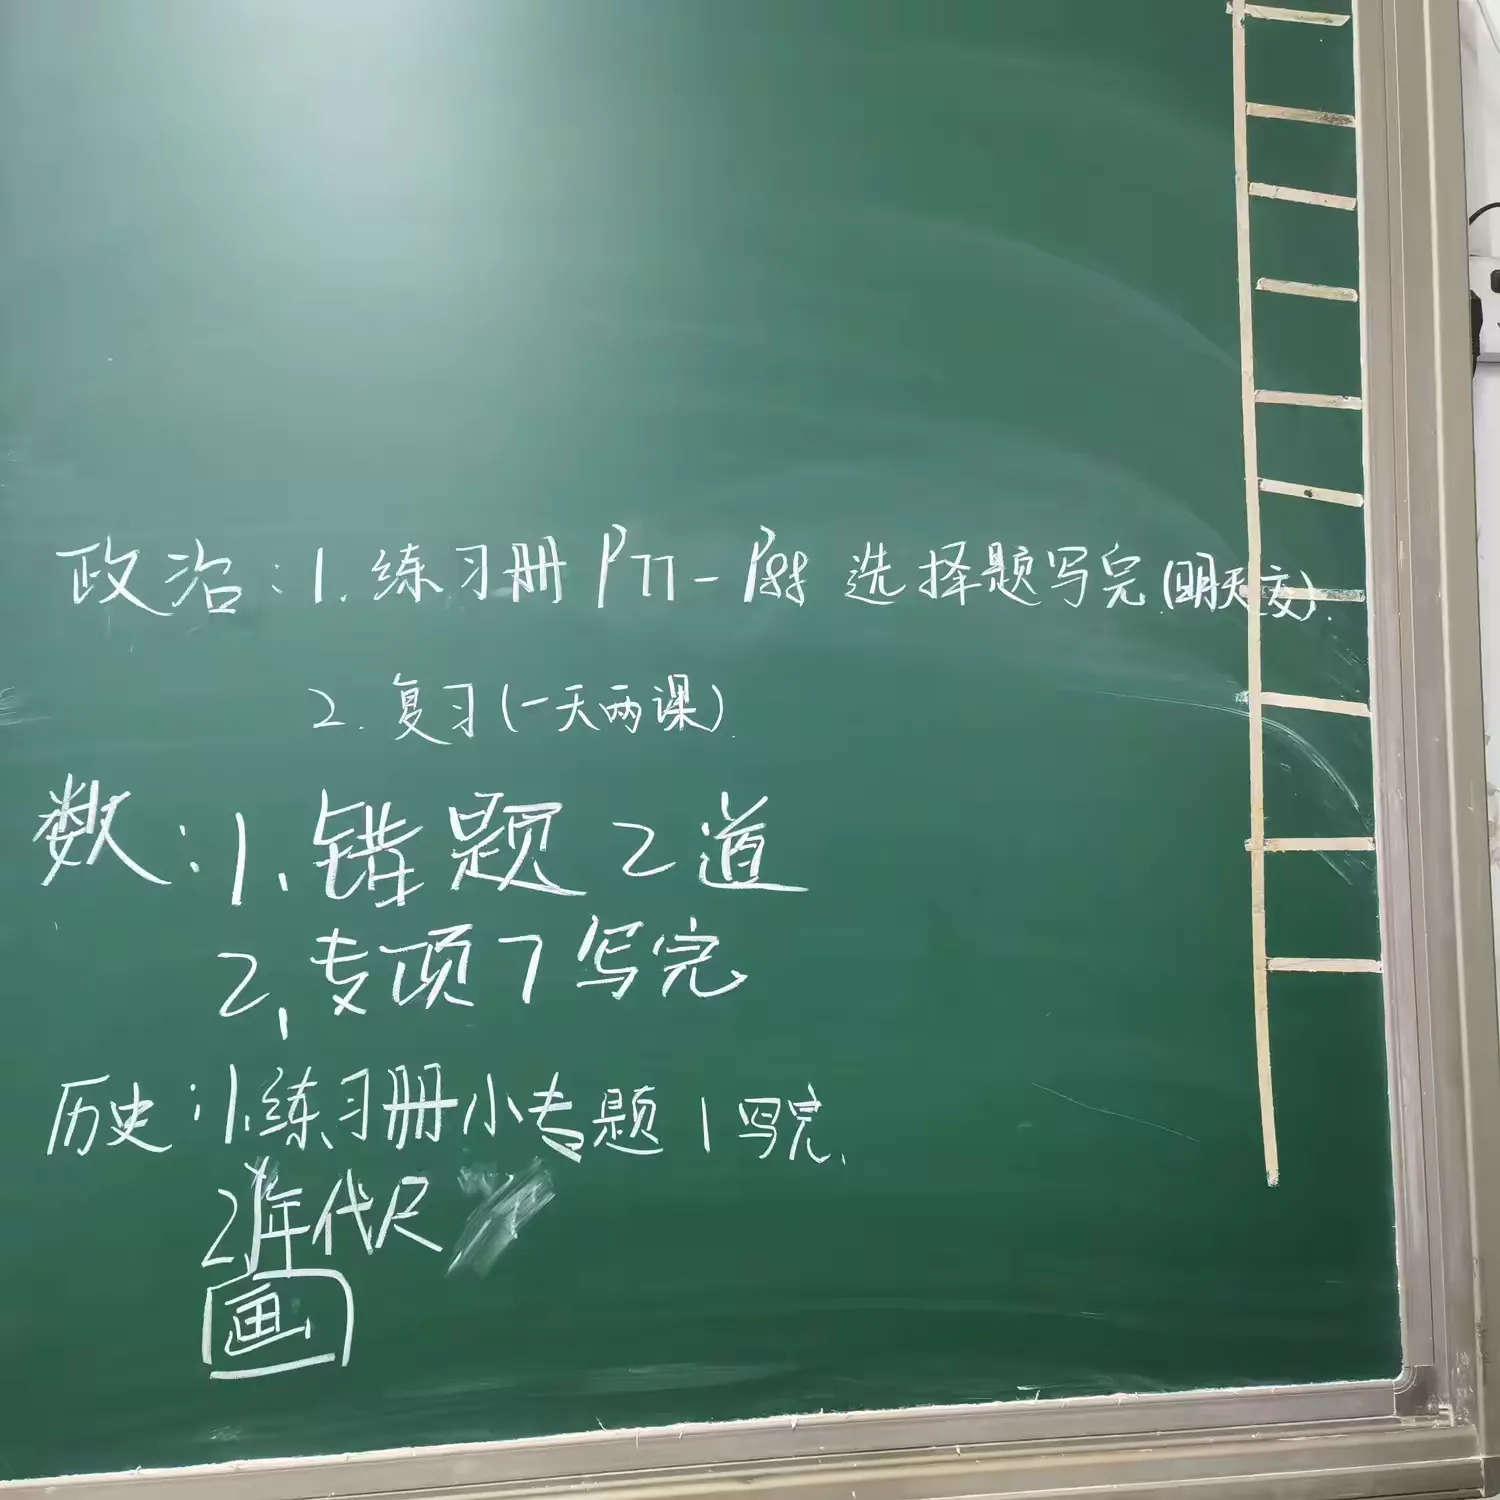 政治:1.练习册 P77-P88 选择题写完(明天交).
2.复习(一天两课).
数:1.错题2道
2.专项7写完
历史:1.练习册小专题1写完.
2年代尺
画